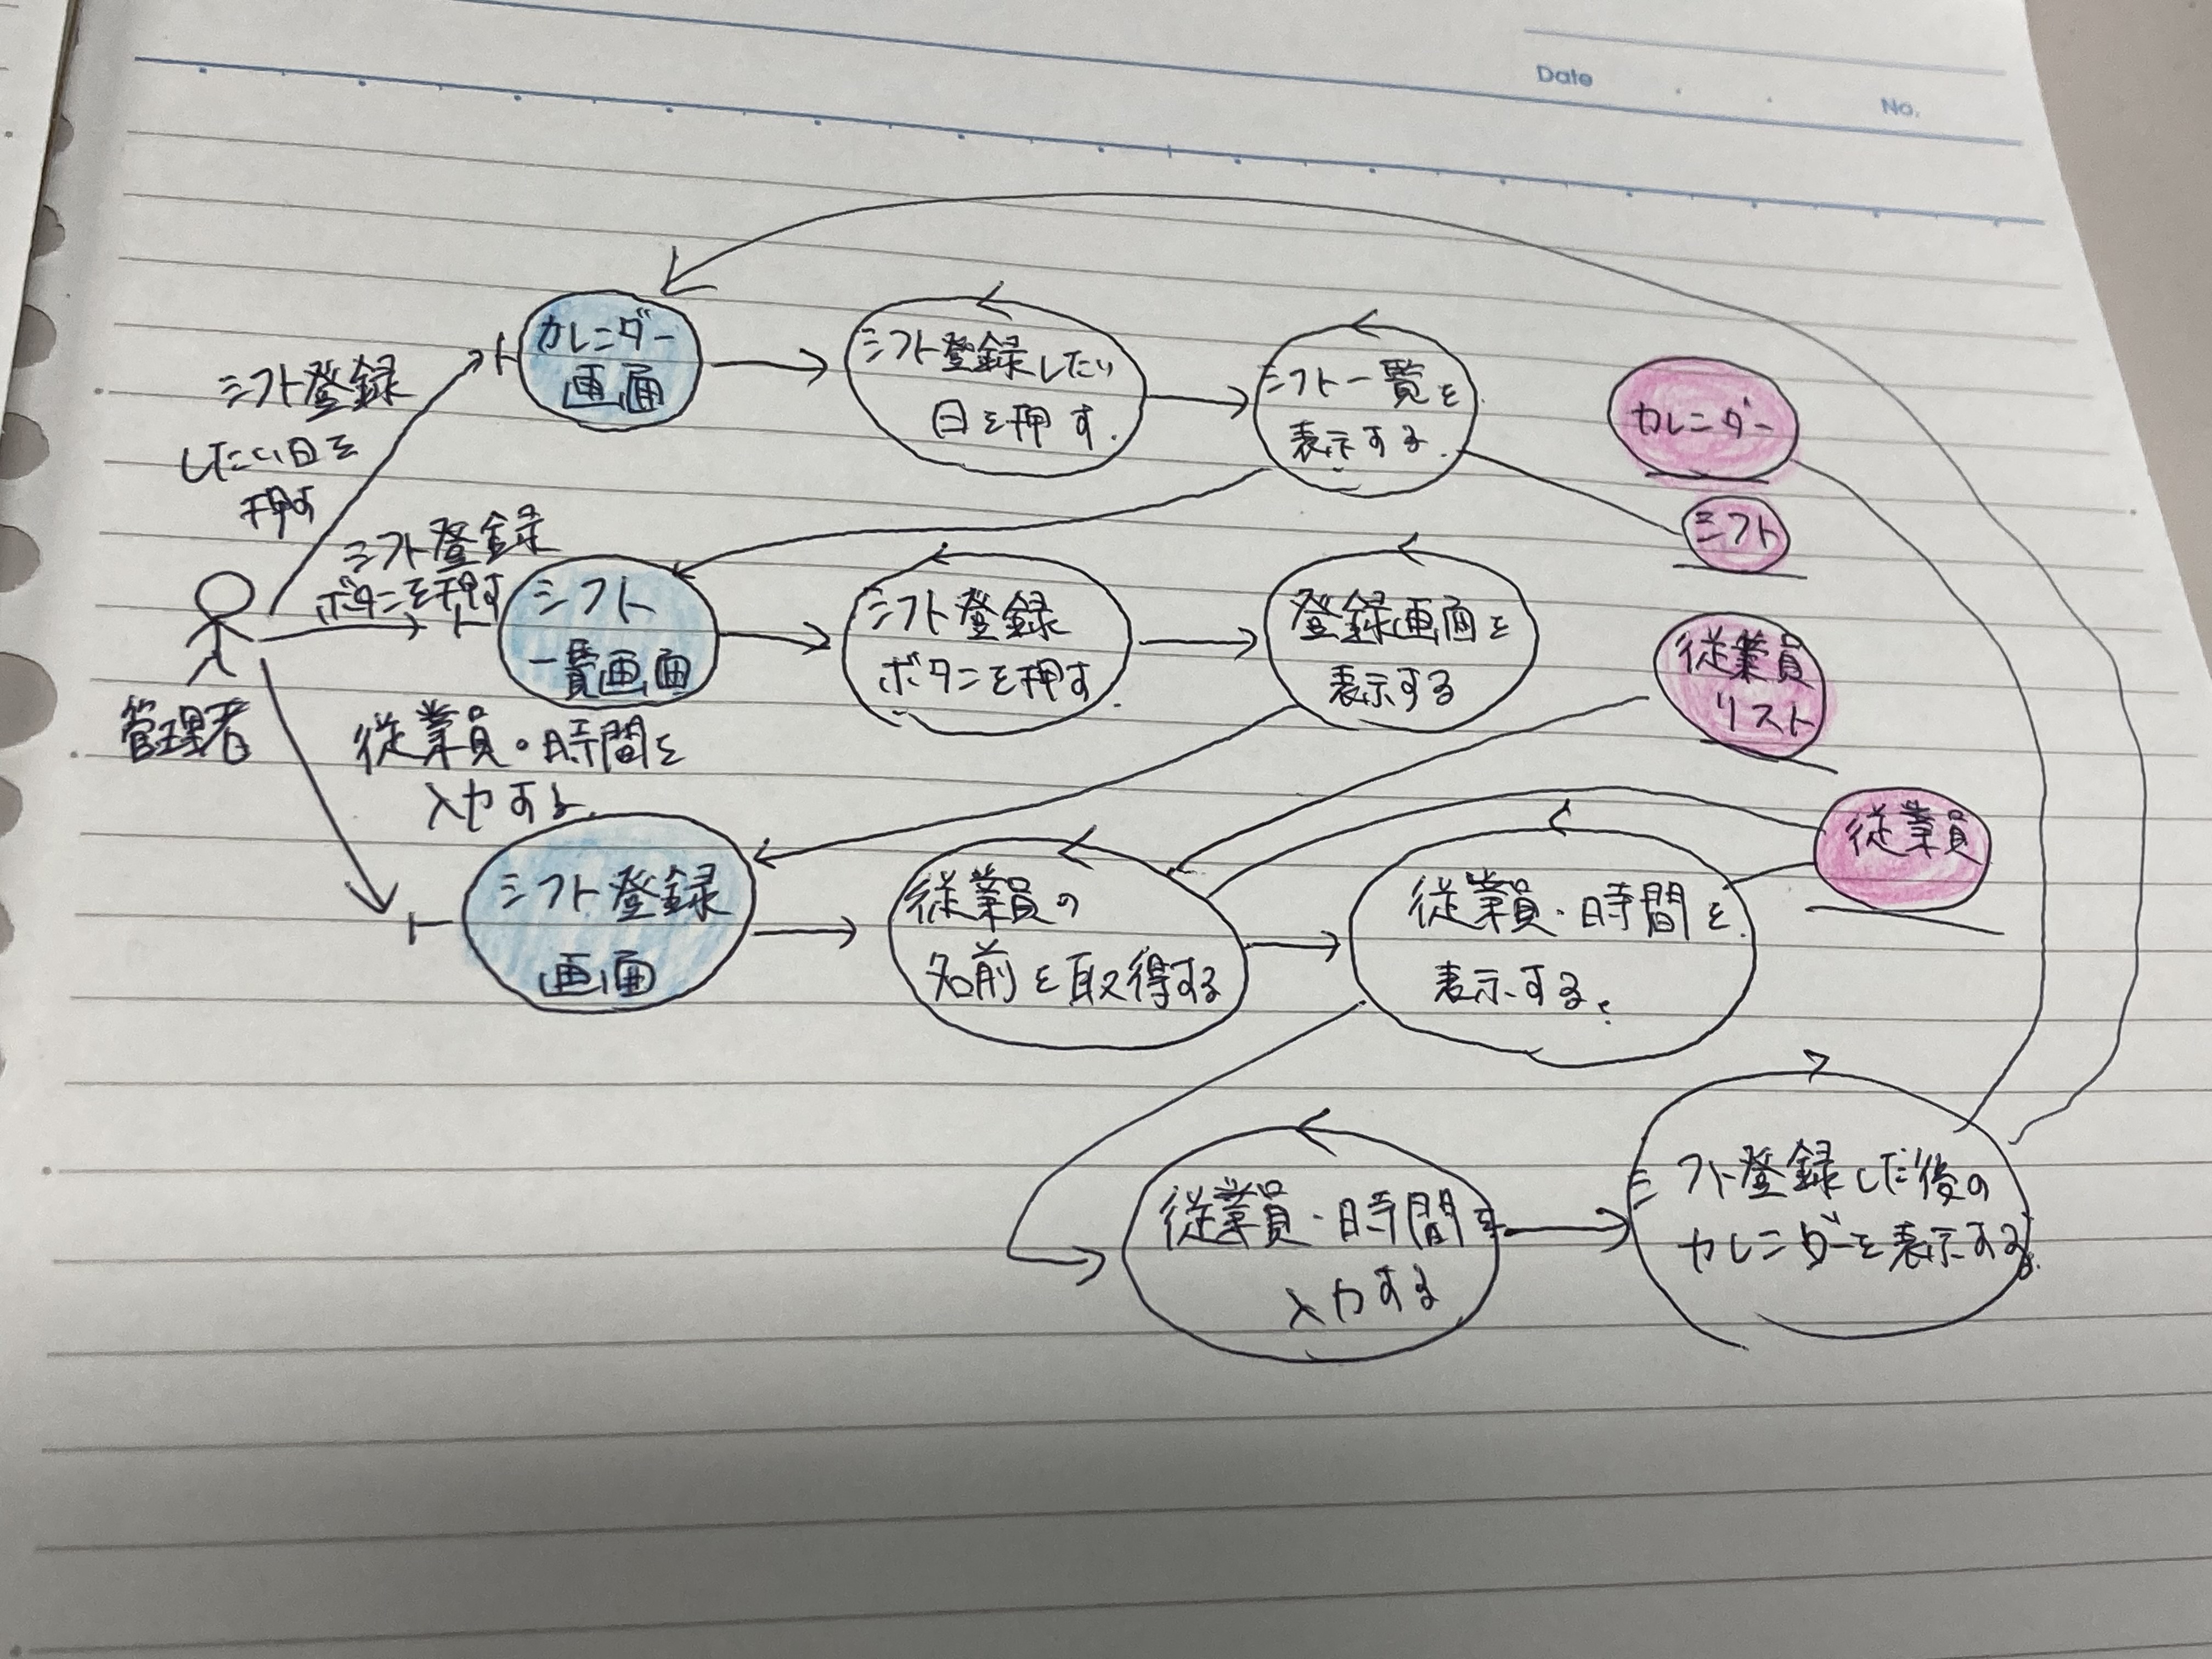 Date
No.
カレンダー
画面
シフト登録したい
日を押す.
シフト一覧を
表示する.
カレンダー
シフト
シフト登録
したい日を
押す
シフト登録
ボタンを押す
シフト
一覧画面
シフト登録
ボタンを押す.
登録画面を
表示する
従業員
リスト
管理者
従業員・時間を
入力する.
シフト登録
画面
従業員の
名前を取得する
従業員・時間を.
表示する.
従業員
従業員・時間を
入力する
シフト登録した後の
カレンダーを表示する.